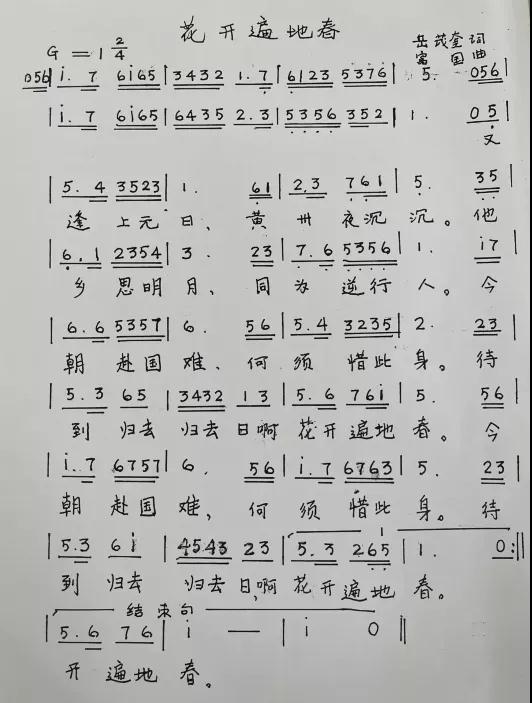 花开遍地春
G = 1 2/4
岳茂奎 词
富国 曲
056 | i. 7 6i65 | 3432 1.7 | 6123 5376 | 5. 056 |
| i. 7 6i65 | 6435 2.3 | 5356 352 | 1. 05 |
又
| 5. 4 3523 | 1. 61 | 2.3 761 | 5. 35 |
逢上元日、黄卅夜沉沉。他
| 6. 1 2354 | 3. 23 | 7.6 5356 | 1. i7 |
乡思明月，同为逆行人。今
| 6.6 5357 | 6. 56 | 5.4 3235 | 2. 23 |
朝赴国难、何须惜此身。待
| 5.3 65 | 3432 13 | 5.6 76i | 5. 56 |
到归去 归去日啊花开遍地春。今
| i.7 6757 | 6. 56 | i.7 6763 | 5. 23 |
朝赴国难，何须惜此身。待
| 5.3 6i | 4543 23 | 5.3 265 | 1. 0 :||
到归去 归去日，啊花开遍地春。
结束句
| 5.6 76 | i — | i 0 ||
开遍地春。